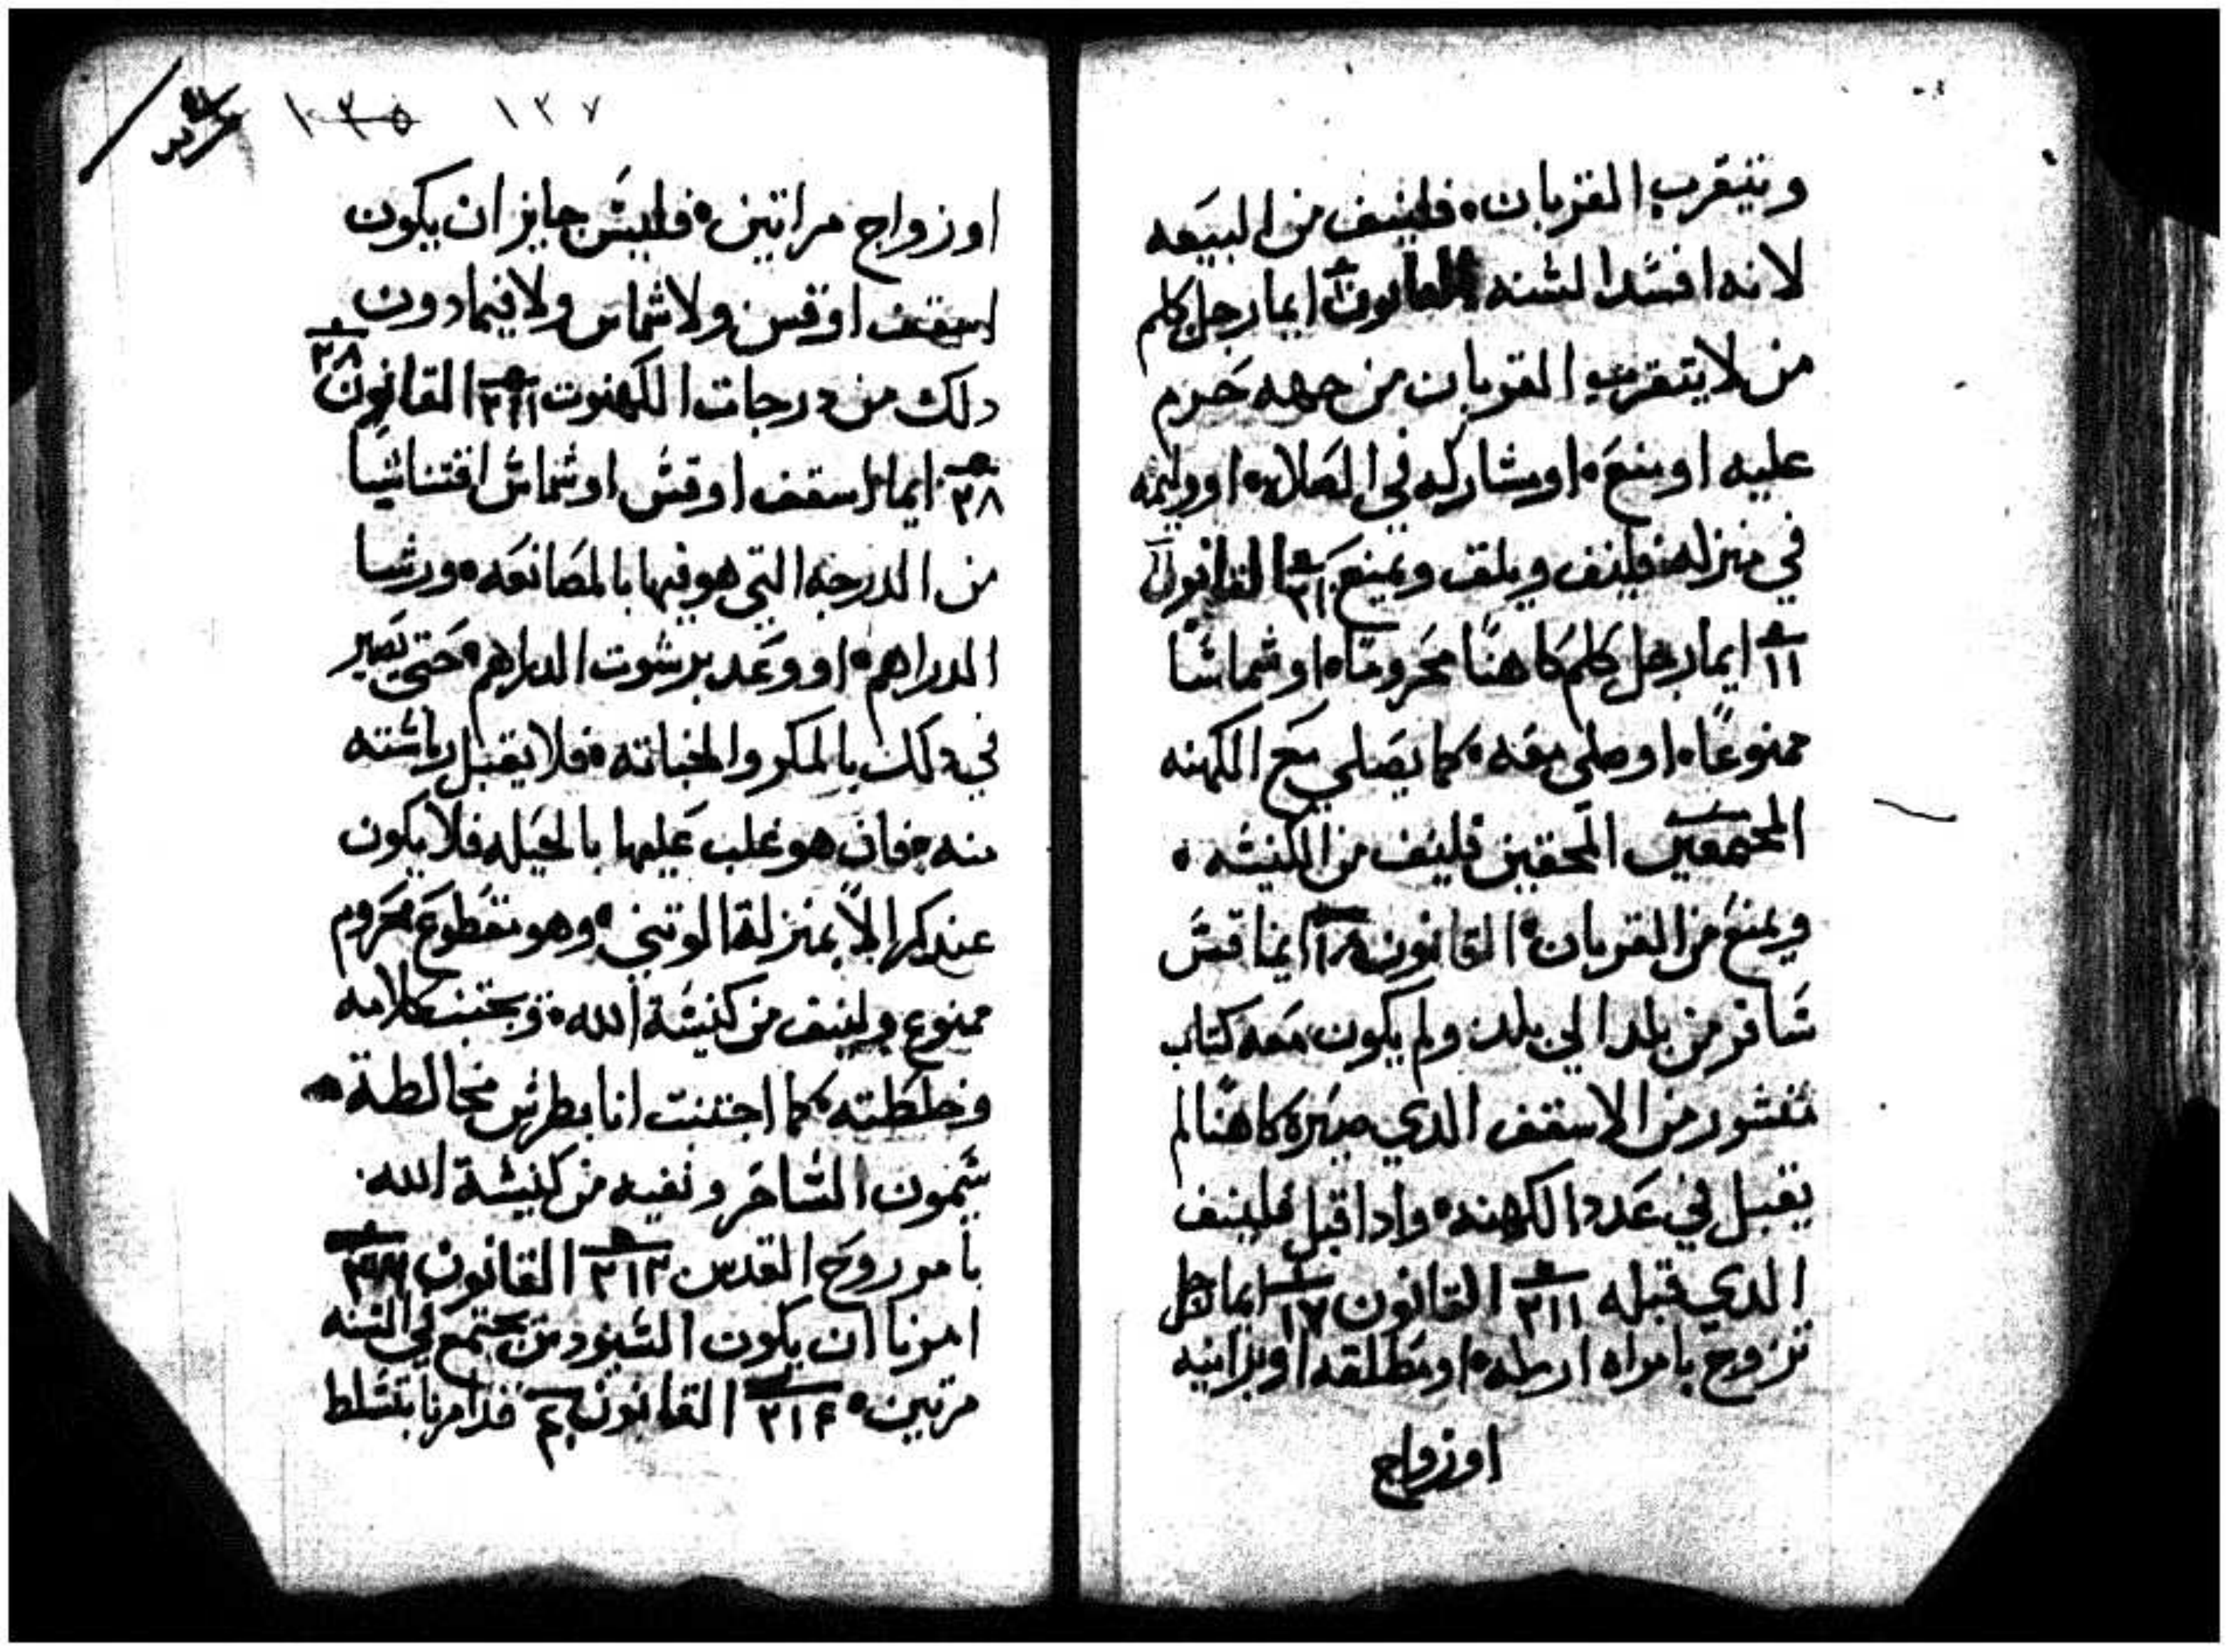 ويتقرب القربان، فلينف من البيعه
لانه افسد السنه القانون ايما رجل كلم
من لا يتقرب القربان من جهه حرم
عليه او منع، او شاركه في الصلاه، او وليمه
في منزله، فلينف ويلقف ويمنع القانون
١١ ايما رجل كلم كاهنًا محرومًا، او شماسًا
ممنوعًا، او صلي معه، كما يصلي مع الكهنه
المحقين فلينف من الكنيسه ،
ويمنع من القربان، القانون ايما قس
سافر من بلد الي بلد ولم يكون معه كتاب
منشور من الاسقف الدي صيره كاهنًا لم
يقبل في عدد الكهنه، وادا قبل فلينف
الدي قبله ٢١١ القانون ١٧ ايما رجل
تزوج بامراه ارمله، او مطلقه او بزانيه
اوزواج
١٣٥ ١٣٧
اوزواج مراتين، فليس جايز ان يكون
اسقف او قس ولا شماس ولا فيما دون
دلك من درجات الكهنوت القانون ٢٨
٢٨ ايما اسقف او قس او شماس اقتنا شيا
من الدرجه التي هو فيها بالمصانعه، ورشا
الدراهم، او وعد برشوت الدراهم، حتي يصير
في دلك بالمكر والخباته، فلا يقبل رياسته
منه، فان هو غلب عليها بالحيله فلا يكون
عندكم الا بمنزلة الوتني، وهو مقطوع محروم
ممنوع ولينف من كنيسة الله، ويجتنب كلامه
وخلطته، كما اجتنبت انا بطرس مخالطة
سيمون الساحر ونفيه من كنيسة الله.
بامر روح القدس ٢١٣ القانون
امرنا ان يكون السنودس يجتمع في السنه
مرتين، ٢١٤ القانون قد امرنا بتسلط